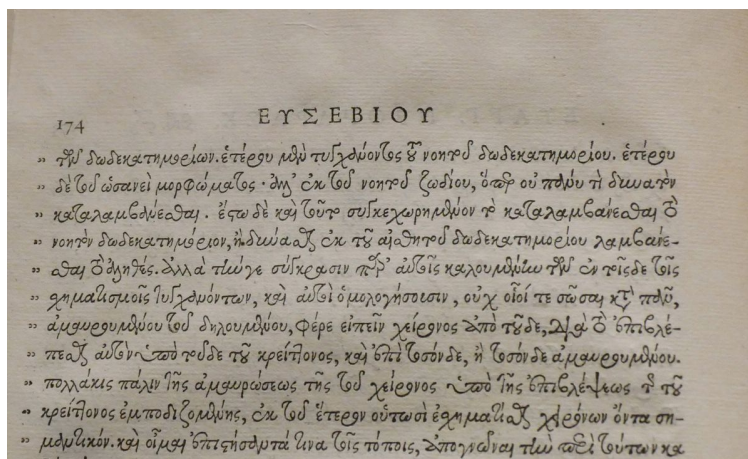 174 ΕΥΣΕΒΙΟΥ
„ τῶν δωδεκατημορίων. ἑτέρου μὲν τυγχάνοντος τοῦ νοητοῦ δωδεκατημορίου. ἑτέρου
„ δὲ τοῦ ὡσανεὶ μορφώματος· ἀλλ' ἐκ τοῦ νοητοῦ ζωδίου, ὅπερ οὐ πάνυ τὶ δυνατὸν
„ καταλαμβάνεσθαι. ἔστω δὲ καὶ τοῦτο συγκεχωρημένον τὸ καταλαμβάνεσθαι τὸ
„ νοητὸν δωδεκατημόριον, ἢ δύνασθαι ἐκ τοῦ αἰσθητοῦ δωδεκατημορίου λαμβάνε-
„ σθαι τὸ ἀληθές. ἀλλὰ τήν γε σύγκρασιν παρ' αὐτοῖς καλουμένην τῶν ἐν τοῖσδε τοῖς
„ σχηματισμοῖς τυγχανόντων, καὶ αὐτοὶ ὁμολογήσουσιν, οὐχ οἷοί τε σῶσαι κατὰ πάνυ,
„ ἀμαυρουμένου τοῦ δηλουμένου, φέρε εἰπεῖν χείρονος ἀπὸ τοῦδε, διὰ τὸ ἐπιβλέ-
„ πεσθαι αὐτὸν ὑπὸ τοῦδε τοῦ κρείττονος, καὶ ἐπὶ τοσόνδε, ἢ τοσόνδε ἀμαυρουμένου.
„ πολλάκις πάλιν τῆς ἀμαυρώσεως τῆς τοῦ χείρονος ὑπὸ τῆς ἐπιβλέψεως τῆς τοῦ
„ κρείττονος ἐμποδιζομένης, ἐκ τοῦ ἕτερον οὑτωσὶ ἐσχηματίσθαι χειρόνων ὄντα ση-
„ μαντικόν. καὶ οἶμαι ἐπιστήσαντά τινα τοῖς τόποις, ἀπογνῶναι τὴν περὶ τούτων κα